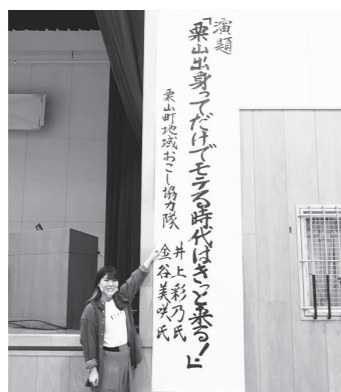 演題
「栗山出身ってだけでモテる時代はきっと来る!」
栗山町地域おこし協力隊
井上彩乃氏
金谷美咲氏